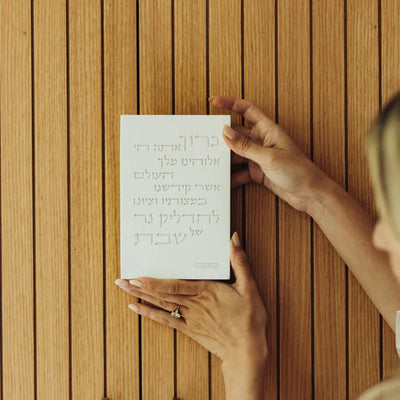 ברוך
אתה ה׳
אלוהינו מלך
העולם
אשר קידשנו
במצוותיו וציונו
להדליק נר
של
שבת